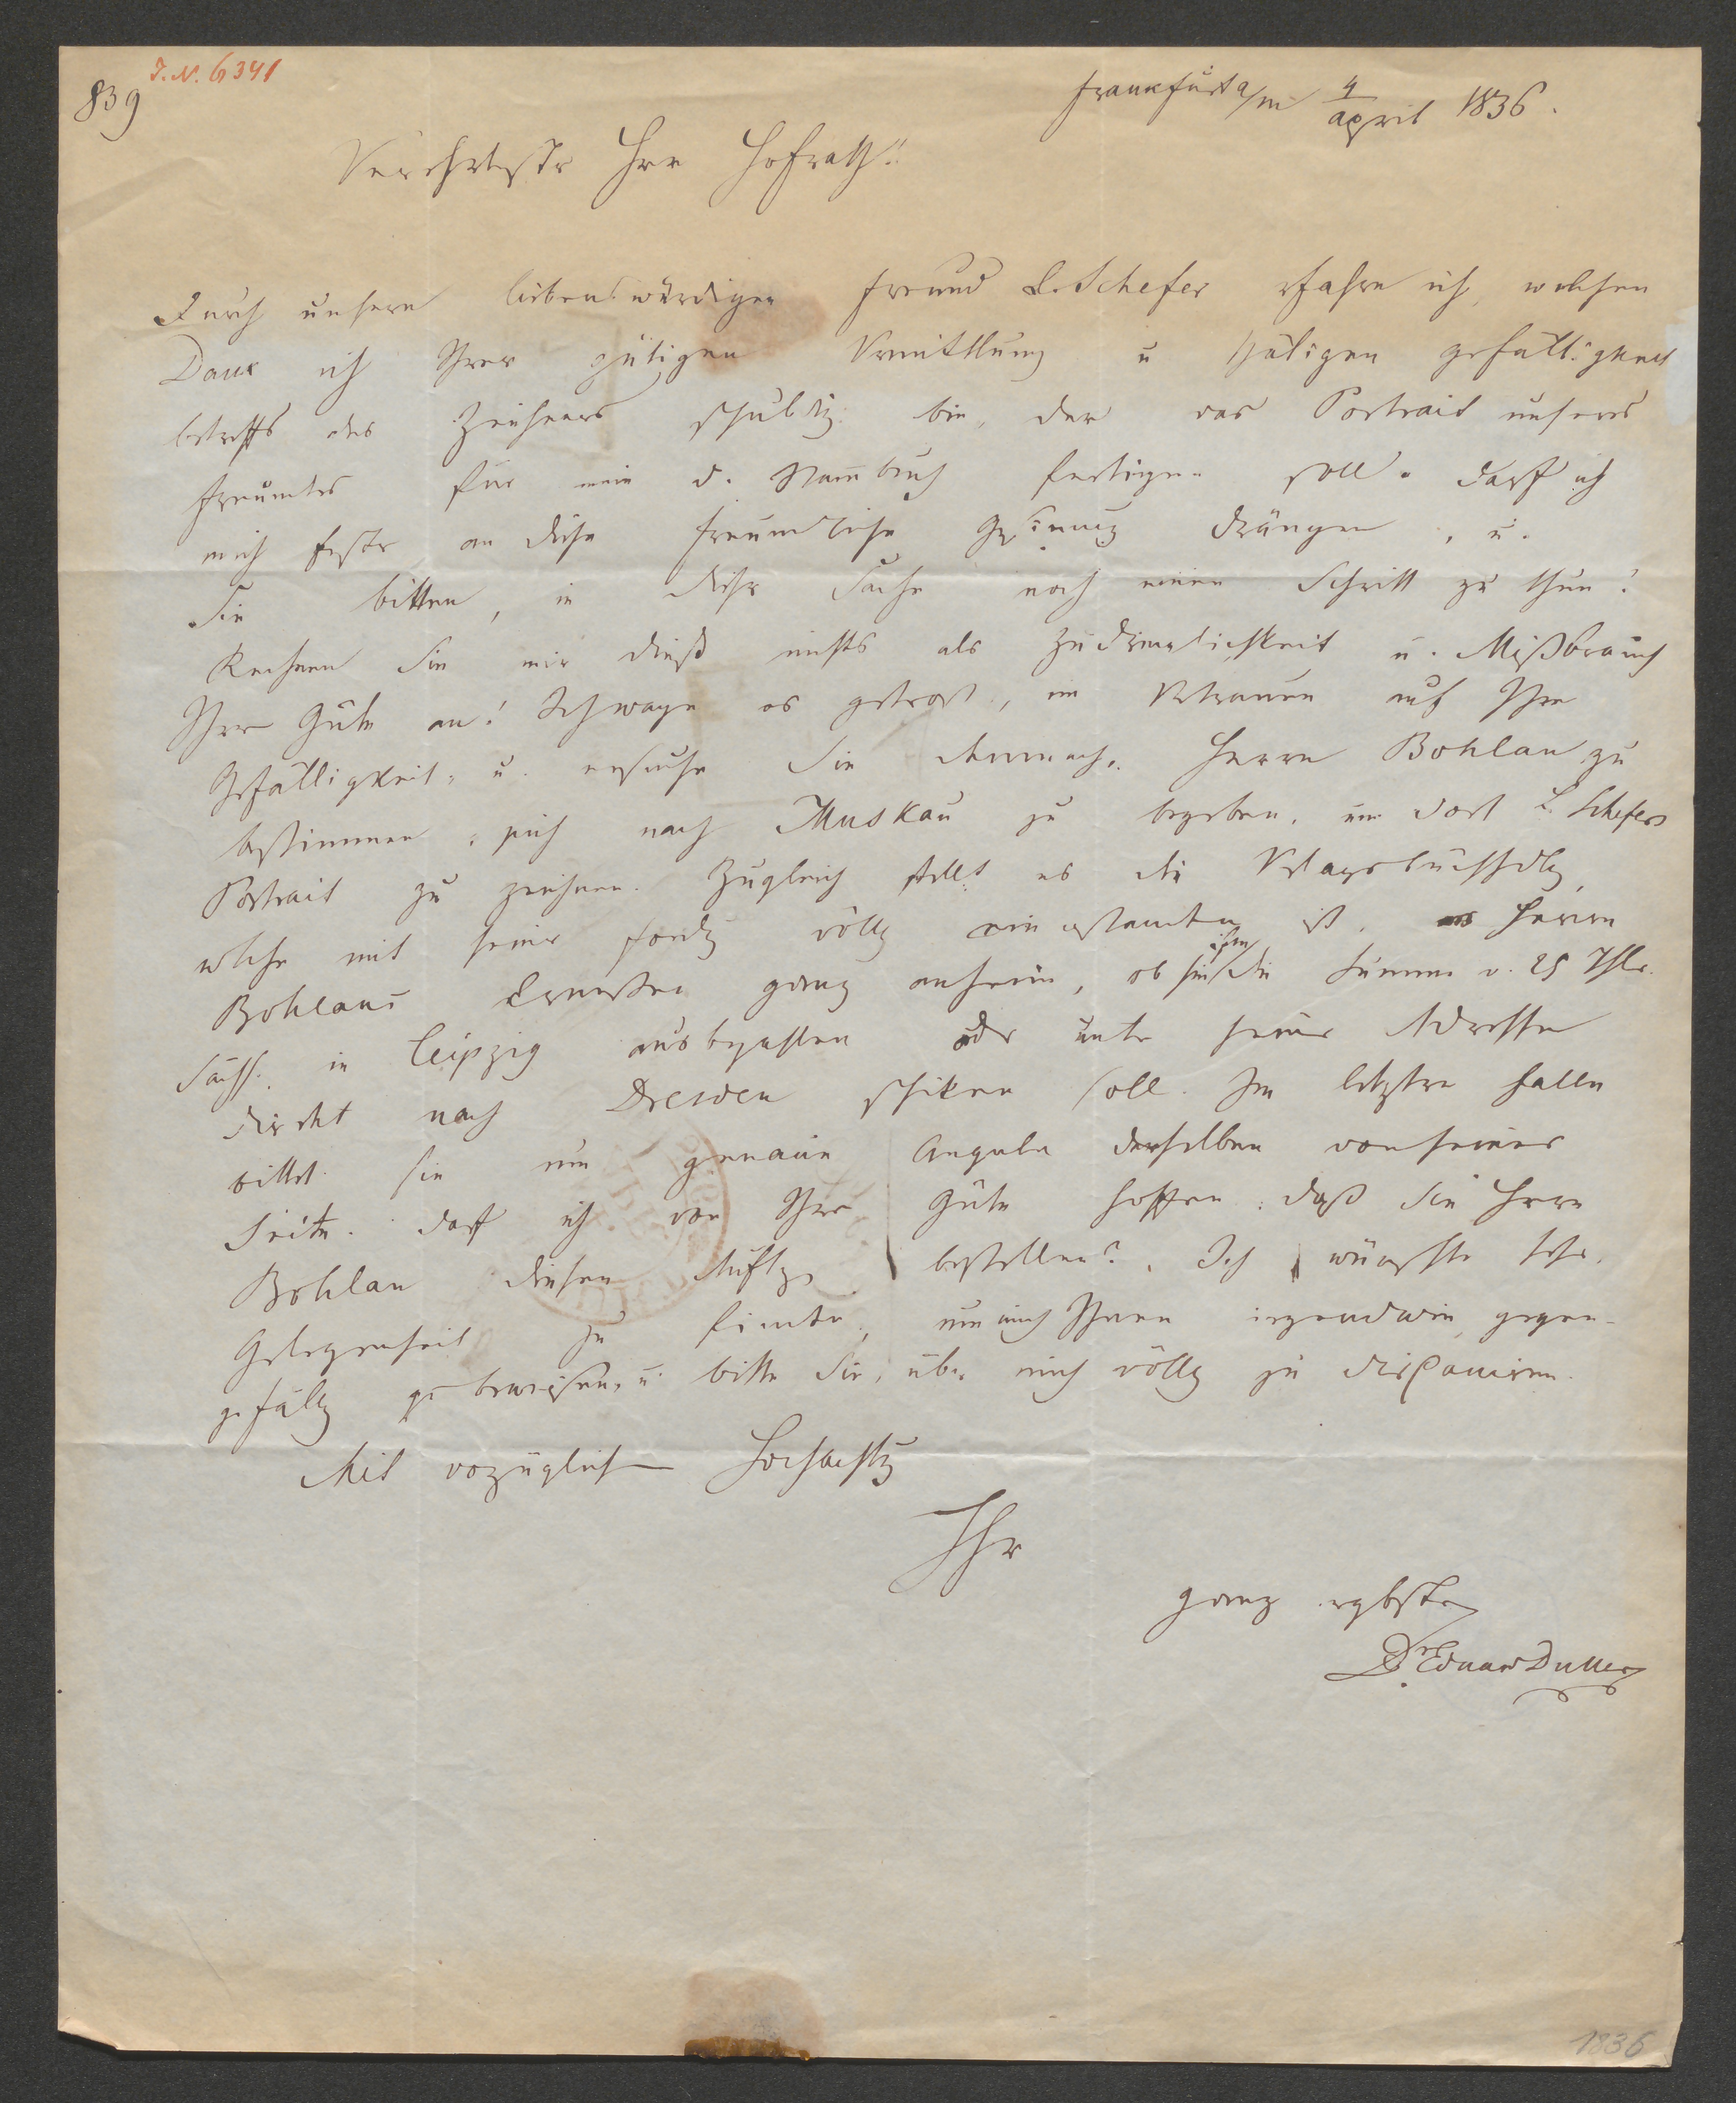 J. N. 6341
839
Frankfurt a/m 4 April 1836.
Verehrtester Herr Hofrath!
Durch unsern liebenswürdigen Freund L. Schefer erfahre ich, welchen
Dank ich Ihrer gütigen Vermittlung u thätigen Gefälligkeit
betreffs des Zeichners schuldig bin, der das Portrait unseres
Freundes für mein d. Stambuch fertigen soll. Darf ich
mich fester an diese freundliche Gesinnung drängen, u.
Sie bitten, in dieser Sache noch einen Schritt zu thun!
Rechnen Sie mir dieß nicht als Zudringlichkeit u. Mißbrauch
Ihrer Güte an! Ich wage es getrost, im Vertrauen auf Ihre
Gefälligkeit, u. ersuche Sie demnach, Herrn Bohlau zu
bestimmen, sich nach Muskau zu begeben, um dort L. Schefers
Portrait zu zeichnen. Zugleich stellt es die Verlagsbuchhdlg,
welche mit seiner Fordrg völlig einverstanden ist, Herrn
Bohlaus Ermessen ganz anheim, ob sie ihm die Summe v. 25 Thlr.
Sächs. in Leipzig ausbezahlen oder unter seiner Adresse
direkt nach Dresden schiken soll. Im letztren Falle
bittet sie um genaue Angabe derselben von seiner
Seite. Darf ich von Ihrer Güte hoffen, daß Sie Herrn
Bohlau diesen Auftrg bestellen? Ich wünschte sehr,
Gelegenheit zu finden, um mich Ihnen irgendwie gegen-
gefällig zu beweisen, u. bitte Sie, über mich völlig zu disponiren.
Mit vorzüglicher Hochachtg
Ihr
ganz ergbster
Dr Eduard Duller
1836